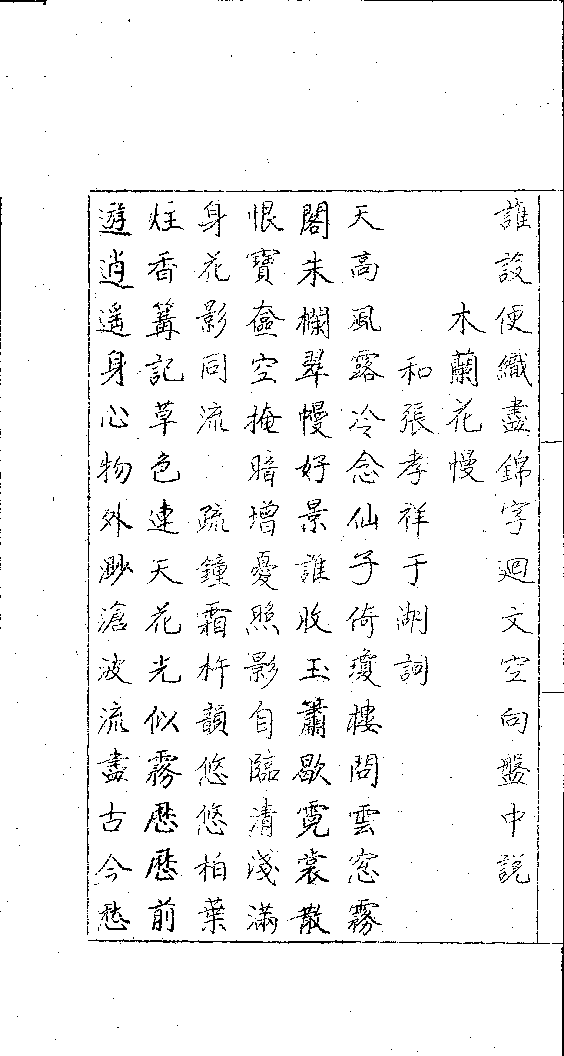 誰設便織盡錦字迴文空向盤中說
木蘭花慢
和張孝祥于湖詞
天高風露冷念仙子倚瓊樓問雲窓霧
閣朱欄翠幔好景誰收玉簫歇霓裳散
恨寶奩空掩暗增憂照影自臨清淺滿
身花影同流　疏鐘霜杵韻悠悠柏葉
炷香篝記草色連天花光似霧歷歷前
遊逍遥身心物外渺滄波流盡古今愁